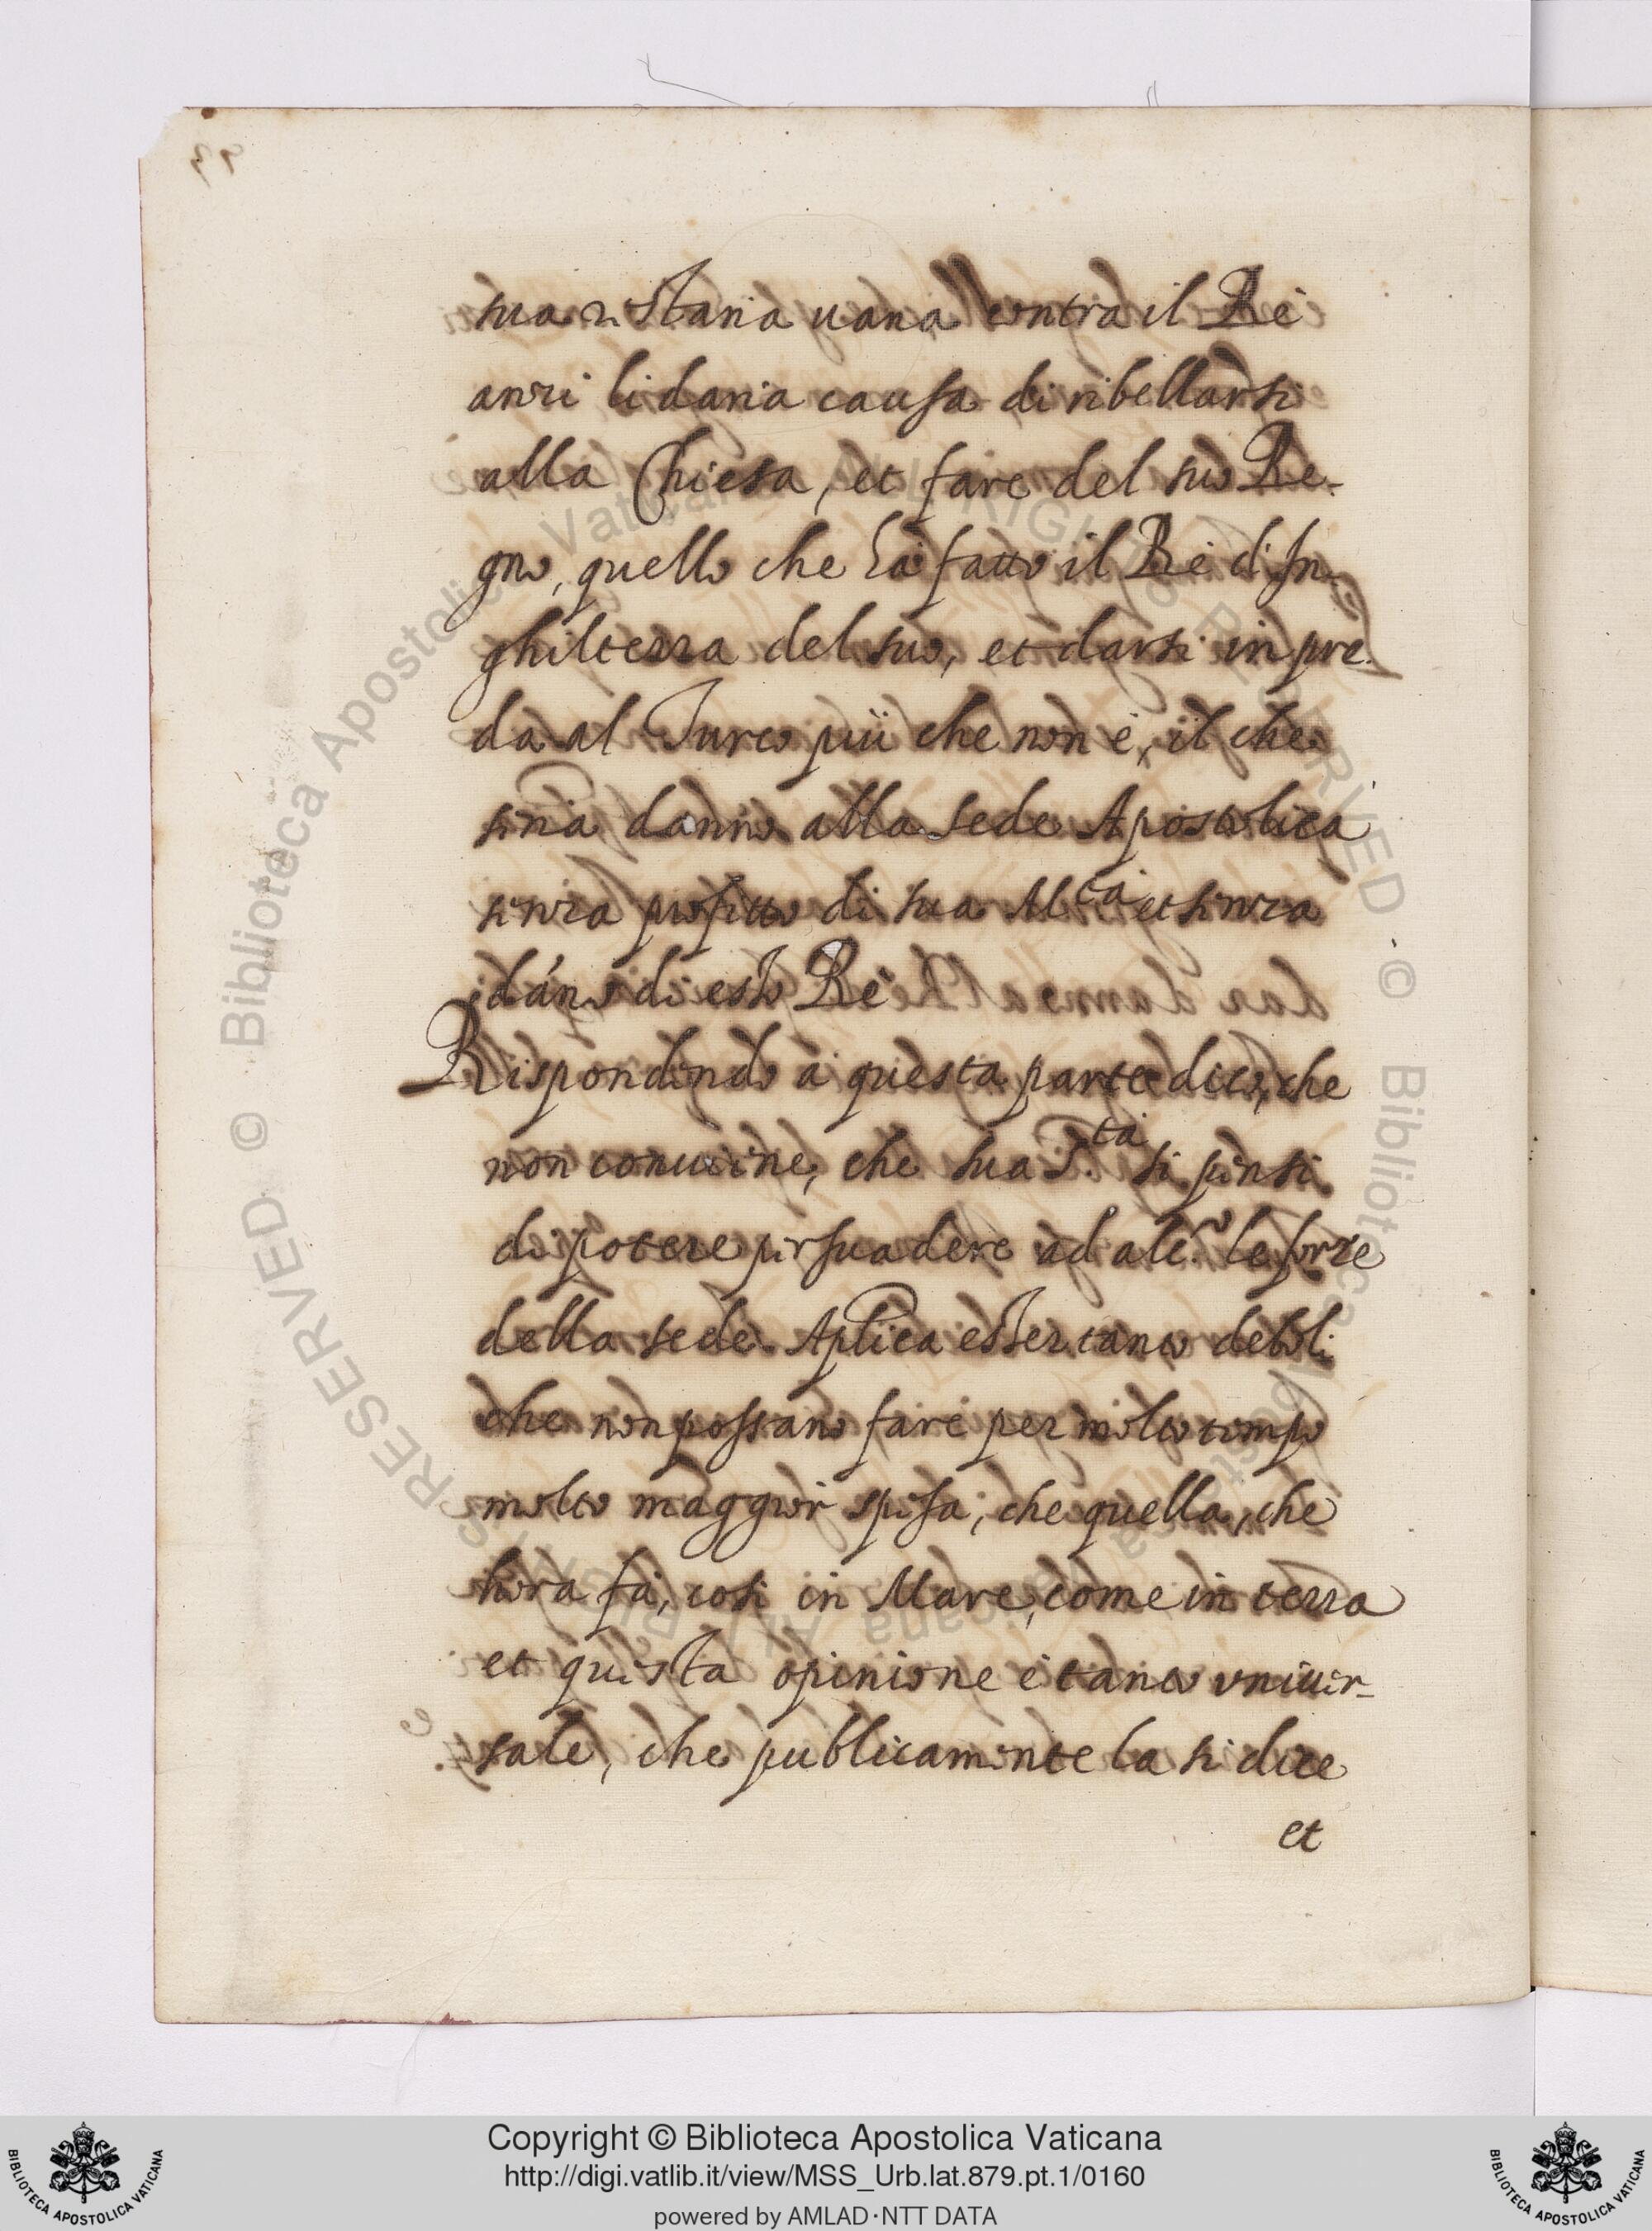 sua restaria uana contra il Rè
anzi li daria causa di ribellarsi
alla Chiesa, et fare del suo Re-
gno, quello che hà fatto il Rè d'In-
ghilterra del suo, et darsi in pre-
da al Turco più che non è, il che
seria danno alla sede Apostolica
senza profitto di sua M.tà et senza
dano di esso Rè
Rispondendo à questa parte dico, che
non conuiene, che sua S.tà si pensi
di potere persuadere ad alc.o le forze
della sede Aplica esser tanto deboli
che non possano fare per molto tempo
molto maggior spesa, che quella, che
hora fà, così in Mare, come in terra
et questa opinione è tanto vniuer-
sale, che publicamente la si dice
et
Copyright © Biblioteca Apostolica Vaticana
http://digi.vatlib.it/view/MSS_Urb.lat.879.pt.1/0160
powered by AMLAD·NTT DATA
BIBLIOTECA APOSTOLICA VATICANA
BIBLIOTECA APOSTOLICA VATICANA